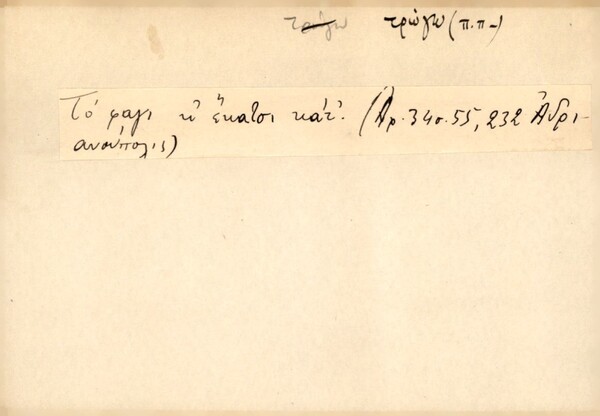 τρώγω τρώγω (π.π-)
Τό φαγι κ' ἔκατσι κάτ'. (Ἀρ. 34σ. 55, 232 Ἀδρι-
ανούπολις)